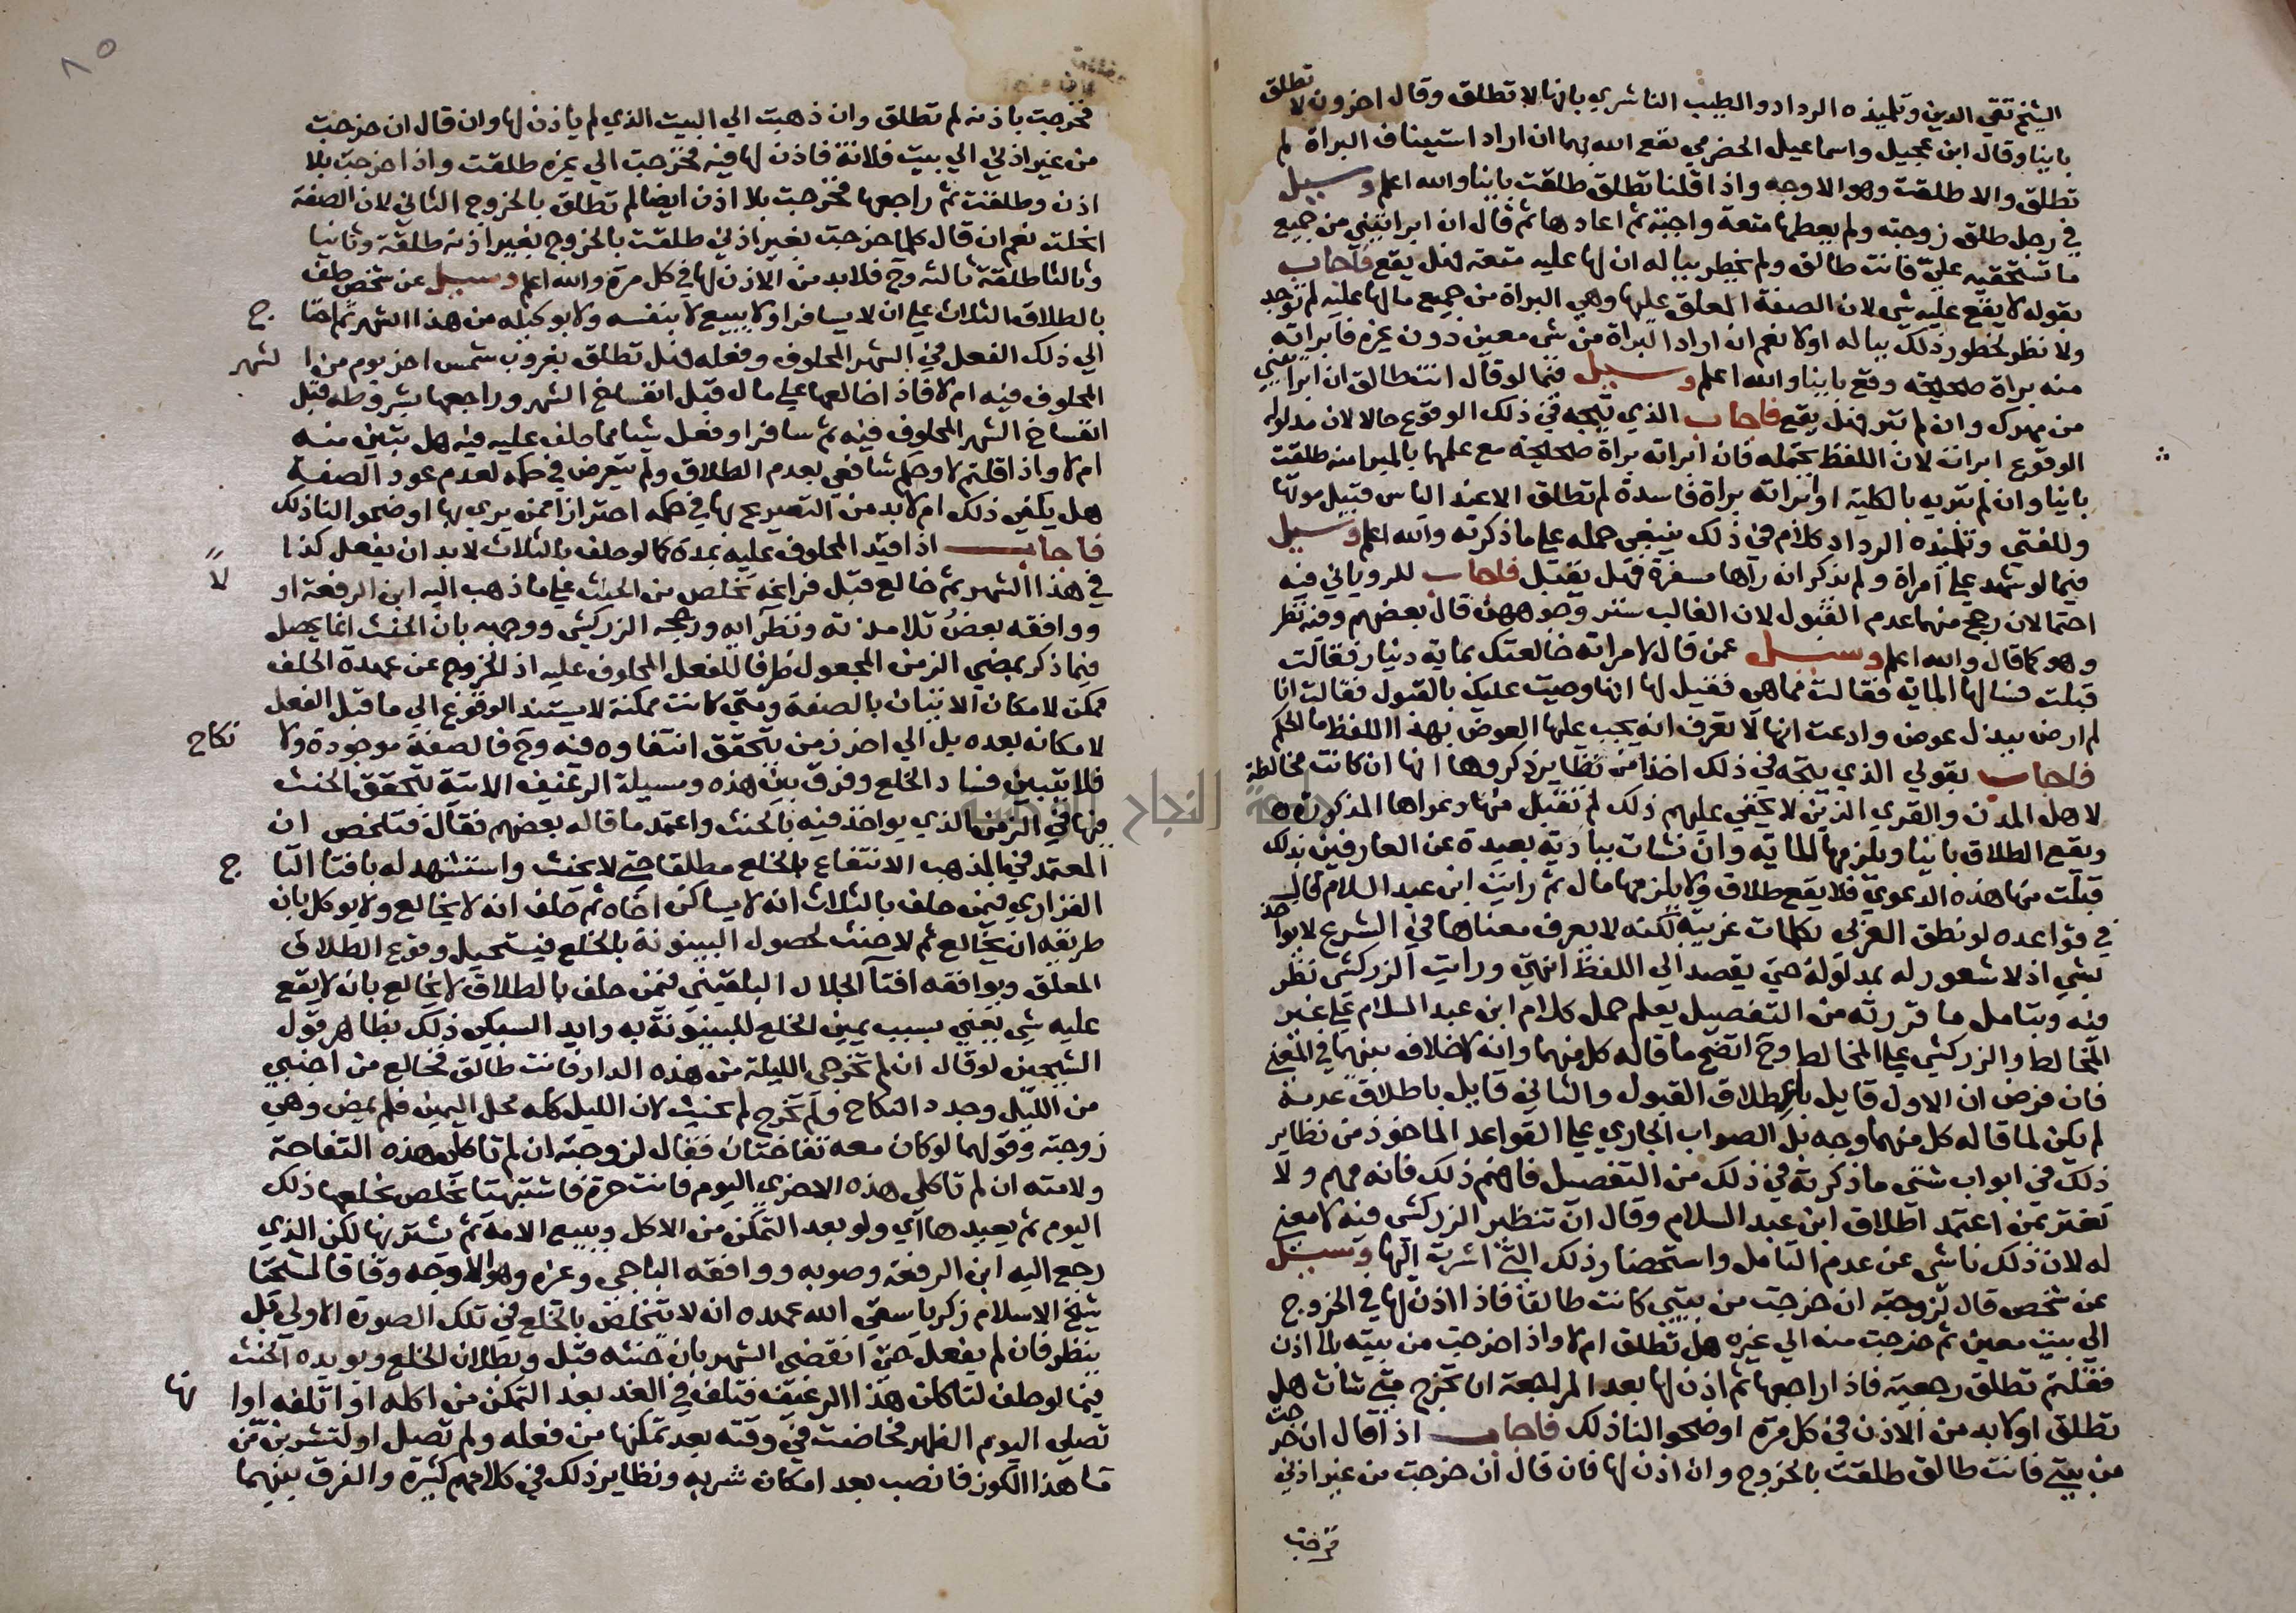 الشيخ تقي الدين وتلميذه الرداد والطيب الناشري بانها لا تطلق وقال اخرون لا تطلق
باينا وقال ابن عجيل واسماعيل الحضرمي نفع الله بهما ان اراد استيناف البراة لم
تطلق والا طلقت وهو الاوجه واذا قلنا تطلق طلقت باينا والله اعلم وسيل
في رجل طلق زوجته ولم يعطها متعة واجبة ثم اعادها ثم قال ان ابراتيني من جميع
ما تستحقيه علي فانت طالق ولم يخطر بباله ان لها عليه متعة فهل يقع فاجاب
بقوله لا يقع عليه شي لان الصفة المعلق عليها وهي البراة من جميع ما لها عليه لم توجد
ولا نظر لخطور ذلك بباله اولا نعم ان اراد البراة من شي معين دون غيره فابراته
منه براة صحيحة وقع باينا والله اعلم وسيل فيما لو قال انت طالق ان ابراتيني
من مهرك وان لم تبر فهل يقع فاجاب الذي يتجه في ذلك الوقوع حالا لان مدلوله
الوقوع ابرات لان اللفظ يحتمله فان ابراته براة صحيحة مع علمها بالمبرا منه طلقت
باينا وان لم تبريه بالكلية او ابراته براة فاسدة لم تطلق الا عند الياس قبيل موتها
وللفتي وتلميذه الرداد كلام في ذلك ينبغي حمله علي ما ذكرته والله اعلم وسيل
فيما لو شهد علي امراة ولم يذكر انه راها مسفرة فهل يقبل فاجاب للروياني فيه
احتمالان رجح منهما عدم القبول لان الغالب ستر وجوههن قال بعضهم وفيه نظر
وهو كما قال والله اعلم وسيل عمن قال لامراته خالعتك بماية دنيار فقالت
قبلت فسالها الماية فقالت فما هي فقيل لها انها وجبت عليك بالقبول فقالت انا
لم ارض ببذل عوض وادعت انها لا تعرف انه يجب عليها العوض بهذا اللفظ ما الحكم
فاجاب بقولي الذي يتجه في ذلك اخذا من نظاير ذكروها انها ان كانت مخالطة
لاهل المدن والقري الذين لا يخفي عليهم ذلك لم تقبل منها دعواها المذكورة
ويقع الطلاق باينا ويلزمها الماية وان نشات ببادية بعيدة عن العارفين بذلك
قبلت منها هذه الدعوي فلا يقع طلاق ولا يلزمها مال ثم رايت ابن عبد السلام قال
في قواعده لو نطق العربي بكلمات غريبة لكنه لا يعرف معناها في الشرع لا يواخذ
بشي اذ لا شعور له بمدلوله حتي يقصد الي اللفظ انتهي ورايت الزركشي نظر
فيه وبتامل ما قررته من التفصيل يعلم حمل كلام ابن عبد السلام علي غير
المخالط والزركشي علي المخالط وح اتضح ما قاله كل منهما وانه لا خلاف بينهما في المعني
فان فرض ان الاول قايل باطلاق القبول والثاني قايل باطلاق عدمه
لم يكن لما قاله كل منهما وجه بل الصواب الجاري علي القواعد الماخوذ من نظاير
ذلك في ابواب شتي ما ذكرته في ذلك من التفصيل فافهم ذلك فانه مهم ولا
تغتر بمن اعتمد اطلاق ابن عبد السلام وقال ان تنظير الزركشي فيه لا معني
له لان ذلك ناشي عن عدم التامل واستحضار ذلك التي اشرت اليها وسيل
عن شخص قال لزوجته ان خرجت من بيتي كانت طالقا فاذا اذن لها في الخروج
الي بيت معين ثم خرجت منه الي غيره هل تطلق ام لا واذا خرجت من بيته بلا اذن
فقلتم تطلق رجعية فاذا راجعها ثم اذن لها بعد المراجعة ان تخرج متي شات هل
تطلق اولا بد من الاذن في كل مرة اوضحوا لنا ذلك فاجاب اذا قال ان خرجت
من بيتي فانت طالق طلقت بالخروج وان اذن لها فان قال ان خرجت من غير اذني
فخرجت
فخرجت باذنه لم تطلق وان ذهبت الي البيت الذي لم ياذن لها وان قال ان خرجت
من غير اذني الي بيت فلانة فاذن لها فيه فخرجت الي غيره طلقت واذا خرجت بلا
اذن وطلقت ثم راجعها فخرجت بلا اذن ايضا لم تطلق بالخروج الثاني لان الصفة
انحلت نعم ان قال كلما خرجت بغير اذني طلقت بالخروج بغير اذنه طلقة وثانيا
وثالثا طلقة ثالثة وح فلا بد من الاذن لها في كل مرة والله اعلم وسيل عن شخص حلف
بالطلاق الثلاث علي ان لا يسافر او لا يبيع لا بنفسه ولا بوكيله من هذا الشهر تم احتاج
الي ذلك الفعل في الشهر المحلوف وفعله فهل تطلق بغروب شمس اخر يوم من الشهر
المحلوف فيه ام لا فاذا خالعها علي مال قبل انفساخ الشهر وراجعها بشروطه قبل
انفساخ الشهر المحلوف فيه ثم سافر او فعل شيا مما حلف عليه فيه هل تبين منه
ام لا واذا قلتم لا وحكم شافعي بعدم الطلاق ولم يتعرض في حكمه لعدم عود الصفة
هل يكفي ذلك ام لا بد من التصريح بها في حكمه احترازا ممن يري بها اوضحوا لنا ذلك
فاجاب اذا قيد المحلوف عليه بمدة كما لو حلف بالثلاث لا بد ان يفعل كذا
في هذا الشهر ثم خالع قبل فراغه تخلص من الحنث علي ما ذهب اليه ابن الرفعة اولا
ووافقه بعض تلامذته ونظرايه ورجحه الزركشي ووجهه بان الحنث انما يحصل
فيما ذكر بمضي الزمن المجعول ظرفا للفعل المحلوف عليه اذ الخروج عن عهدة الحلف
ممكن لامكان الاتيان بالصفة ومتي كانت ممكنة لا يستند الوقوع الي ما قبل الفعل
لامكانه بعده بل الي اخر زمن يتحقق انتفاوه فيه وح فالصفة موجودة ولا نكاح
فلا تبين فساد الخلع وفرق بين هذه ومسيلة الرغيف الاتية بتحقق الحنث
فيها في الزمن الذي يواخذ فيه بالحنث واعتمد ما قاله بعضهم فقال فتلخص ان
المعتمد في المذهب الانتفاع بالخلع مطلقا حتي لا يحنث واستشهد له بافتا التاج
الفزاري فيمن حلف بالثلاث انه لا يساكن اخاه ثم حلف انه لا يخالع ولا يوكل بان
طريقه ان يخالع ثم لا حنث لحصول البينونة بالخلع فيستحيل وقوع الطلاق
المعلق ويوافقه افتا الجلال البلقيني فيمن حلف بالطلاق لا يخالع بانه لا يقع
عليه شي يعني بسبب يمين الخلع للبينونة به وايد السبكي ذلك بظاهر قول
الشيخين لو قال ان لم تخرجي الليلة من هذه الدار فانت طالق فخالع من اجنبي
من الليل وجدد النكاح ولم تخرج لم يحنث لان الليل كله محل اليمين فلم يمض وهي
زوجته وقولهما لو كان معه تفاحتان فقال لزوجته ان لم تاكلي هذه التفاحة
ولامته ان لم تاكلي هذه الاخري اليوم فانت حرة فاشتبهتا تخلص بخلعها ذلك
اليوم ثم يعيدها اي ولو بعد التمكن من الاكل وببيع الامة ثم يشتريها لكن الذي
رجع اليه ابن الرفعة وصوبه ووافقه الباجي وغيره وهو الاوجه وفاقا لشيخنا
شيخ الاسلام زكريا سقي الله عهده انه لا يتخلص بالخلع في تلك الصورة الاولي بل
ينظر فان لم يفعل حتي انقضي الشهر بان حنثه قبل وبطلان الخلع ويويده الحنث
فيما لو حلف لتاكلن هذا الرغيف فتلف في الغد بعد التمكن من اكله او اتلفه او انها
تصلي اليوم الظهر فحاضت في وقته بعد تمكنها من فعله ولم تصل او لتشربن من
ما هذا الكوز فانصب بعد امكان شربه ونظاير ذلك في كلامهم كثيرة والفرق بينهما